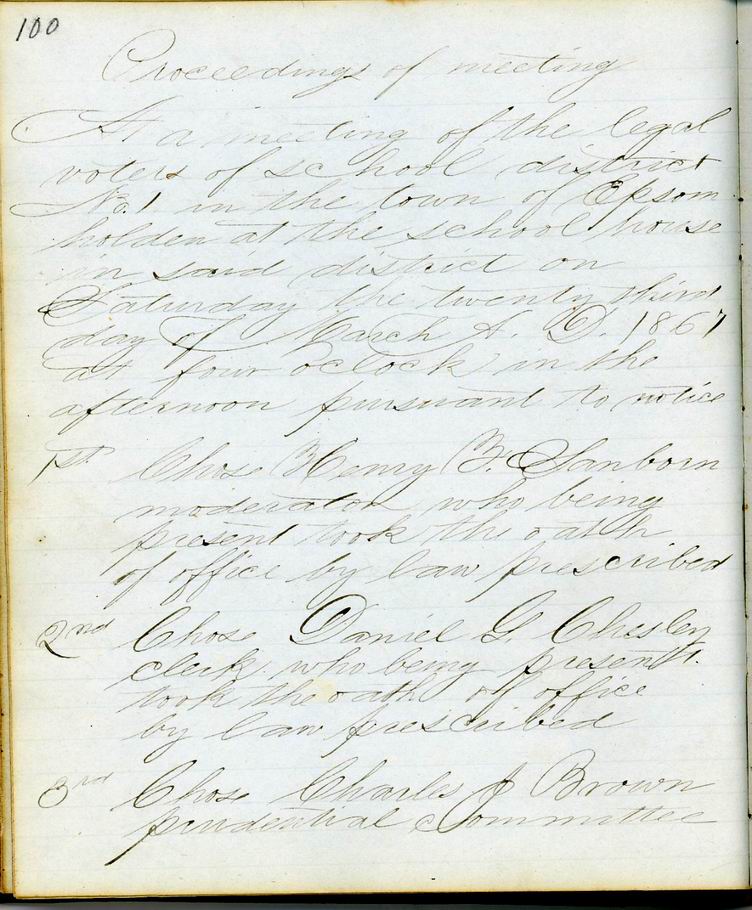 100
Proceedings of meeting
At a meeting of the legal
voters of school district
No. 1 in the town of Epsom
holden at the school house
in said district on
Saturday the twenty third
day of March A. D. 1867
at four oclock in the
afternoon pursuant to notice
1st Chose Henry F. Sanborn
moderator who being
present took the oath
of office by law prescribed
2nd Chose Daniel G Chesley
clerk who being present.
took the oath of office
by law prescribed
3rd Chose Charles J Brown
prudential committee